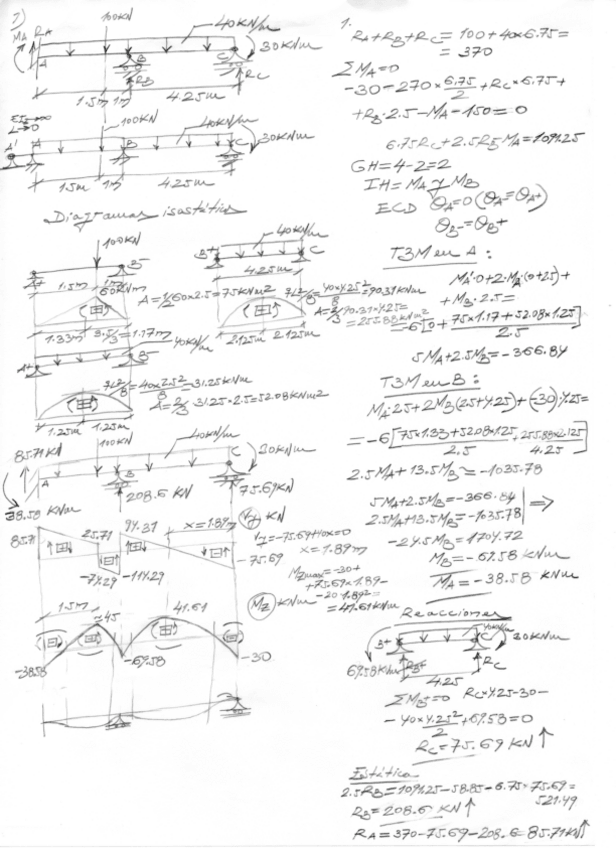 1)
100KN
40KN/m
MA RA
30KNm
A
B
C
RB
RC
1.5m 1m
4.25m
EI→∞
L→0
100KN
40KN/m
30KNm
A' A
B
C
1.5m 1m
4.25m
Diagramas isostáticos
100KN
40KN/m
B-
B+
C
1.5m
4.25m
60KNm
A=1/2 60×2.5=75KNm2
qL²/8=40×4.25²/8=90.31KNm
A=2/3 90.31×4.25=
=255.88KNm2
1.33m
3.5/3=1.17m
2.125m 2.125m
40KN/m
A+
B-
qL²/8=40×2.5²/8=31.25KNm
A=2/3 31.25×2.5=52.08KNm2
1.25m 1.25m
100KN
40KN/m
85.71KN
30KNm
A
B
C
208.6 KN
75.69KN
38.58 KNm
Vz KN
85.71
25.71
94.31
x=1.89m
-74.29
-114.29
-75.69
Vz=-75.69+40x=0
x=1.89m
Mz KNm
Mzmax=-30+
+75.69×1.89-
-20×1.89²=
=41.61KNm
1.5m
≈45
41.61
-38.58
-69.58
-30
1.
RA+RB+RC=100+40×6.75=
=370
ΣMA=0
-30-270×6.75/2+RC×6.75+
+RB·2.5-MA-150=0
6.75RC+2.5RB-MA=1091.25
GH=4-2=2
IH=MA y MB
ECD θA=0(θA=θA+)
θB-=θB+
T3M en A:
MA'·0+2·MA(0+2.5)+
+MB·2.5=
=-6[0+75×1.17+52.08×1.25/2.5]
5MA+2.5MB=-366.84
T3M en B:
MA·2.5+2MB(2.5+4.25)+(-30)·4.25=
=-6[75×1.33+52.08×1.25/2.5+255.88×2.125/4.25]
2.5MA+13.5MB=-1035.78
5MA+2.5MB=-366.84
2.5MA+13.5MB=-1035.78 ⇒
-24.5MB=1704.72
MB=-69.58 KNm
MA=-38.58 KNm
Reacciones
40KN/m
B+
C
30KNm
69.58KNm
RB+
RC
4.25
ΣMB+=0 RC×4.25-30-
-40×4.25²/2+69.58=0
RC=75.69 KN↑
Estática
2.5RB=1091.25-58.85-6.75×75.69=
521.49
RB=208.6 KN↑
RA=370-75.69-208.6=85.71KN↑